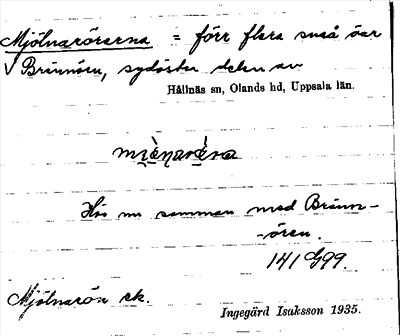 Mjölnarörarna = förr flera små öar
√ Brännören, sydöstra delen av
Hållnäs sn, Olands hd, Uppsala län.
Hör nu samman med Bränn-
-ören.
141 G99.
Mjölnarön ek.
Ingegärd Isaksson 1935.